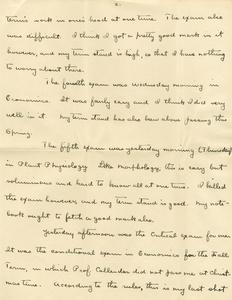 2.
term's work in one's head at one time. The exam also
was difficult. I think I got a pretty good mark in it
however, and my term stand is high, so that I have nothing
to worry about there.
The fourth exam was Wednesday morning in
Economics. It was fairly easy and I think I did very
well in it. My term stand has also been above passing this
Spring.
The fifth exam was yesterday morning (Thursday)
in Plant Physiology. Like Morphology, this is easy but
voluminous and hard to know all at one time. I
the exam however and my term stand is good. My note-
book ought to fetch a good mark also.
Yesterday afternoon was the Critical exam for me.
It was the conditional exam in Economics for the Fall
Term, in which Prof. Callender did not pass me at Christ-
mas time. According to the rules, this is my last chance